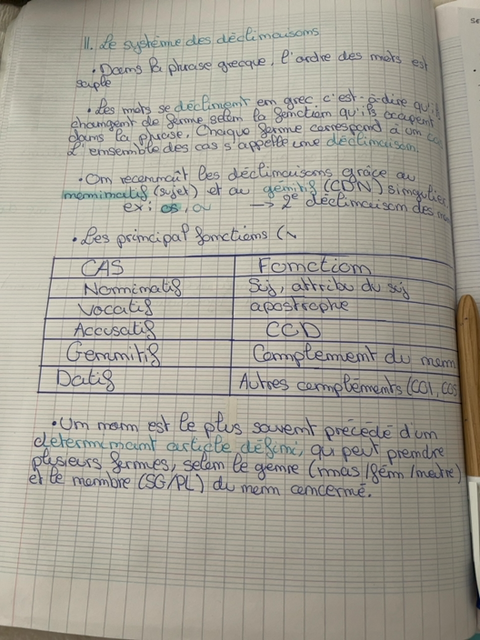 II. Le système des déclinaisons
• Dans la phrase grecque, l'ordre des mots est
souple
• Les mots se déclinent en grec c'est-à-dire qu'ils
changent de forme selon la fonction qu'ils occupent
dans la phrase. Chaque forme correspond à un cas
L'ensemble des cas s'appelle une déclinaison.
• On reconnaît les déclinaisons grâce au
nominatif (sujet) et au génitif (CDN) singulier
ex: os, ou → 2e déclinaison des
• Les principal fonctions
CAS Fonction
Nominatif Suj, attribu du suj
Vocatif apostrophe
Accusatif CCD
Gennitif Complement du nom
Datif Autres compléments (COI, COS
• Un nom est le plus souvent précedé d'un
déterminant article défini, qui peut prendre
plusieurs formes, selon le genre (mas/fém/neutre)
et le nombre (SG/PL) du nom concerné.